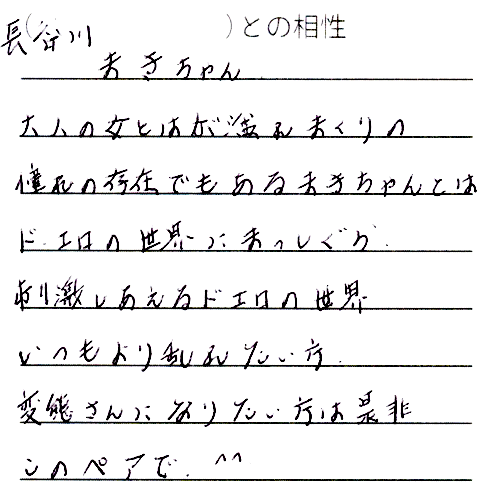 長(谷川 )との相性
まきちゃん
大人の女とはが溢れまくりの
憧れの存在でもあるまきちゃんとは
ド.エロの世界にまっしぐら.
刺激しあえるドエロの世界
いつもより乱れたい方.
変態さんになりたい方は是非
このペアで. ^^